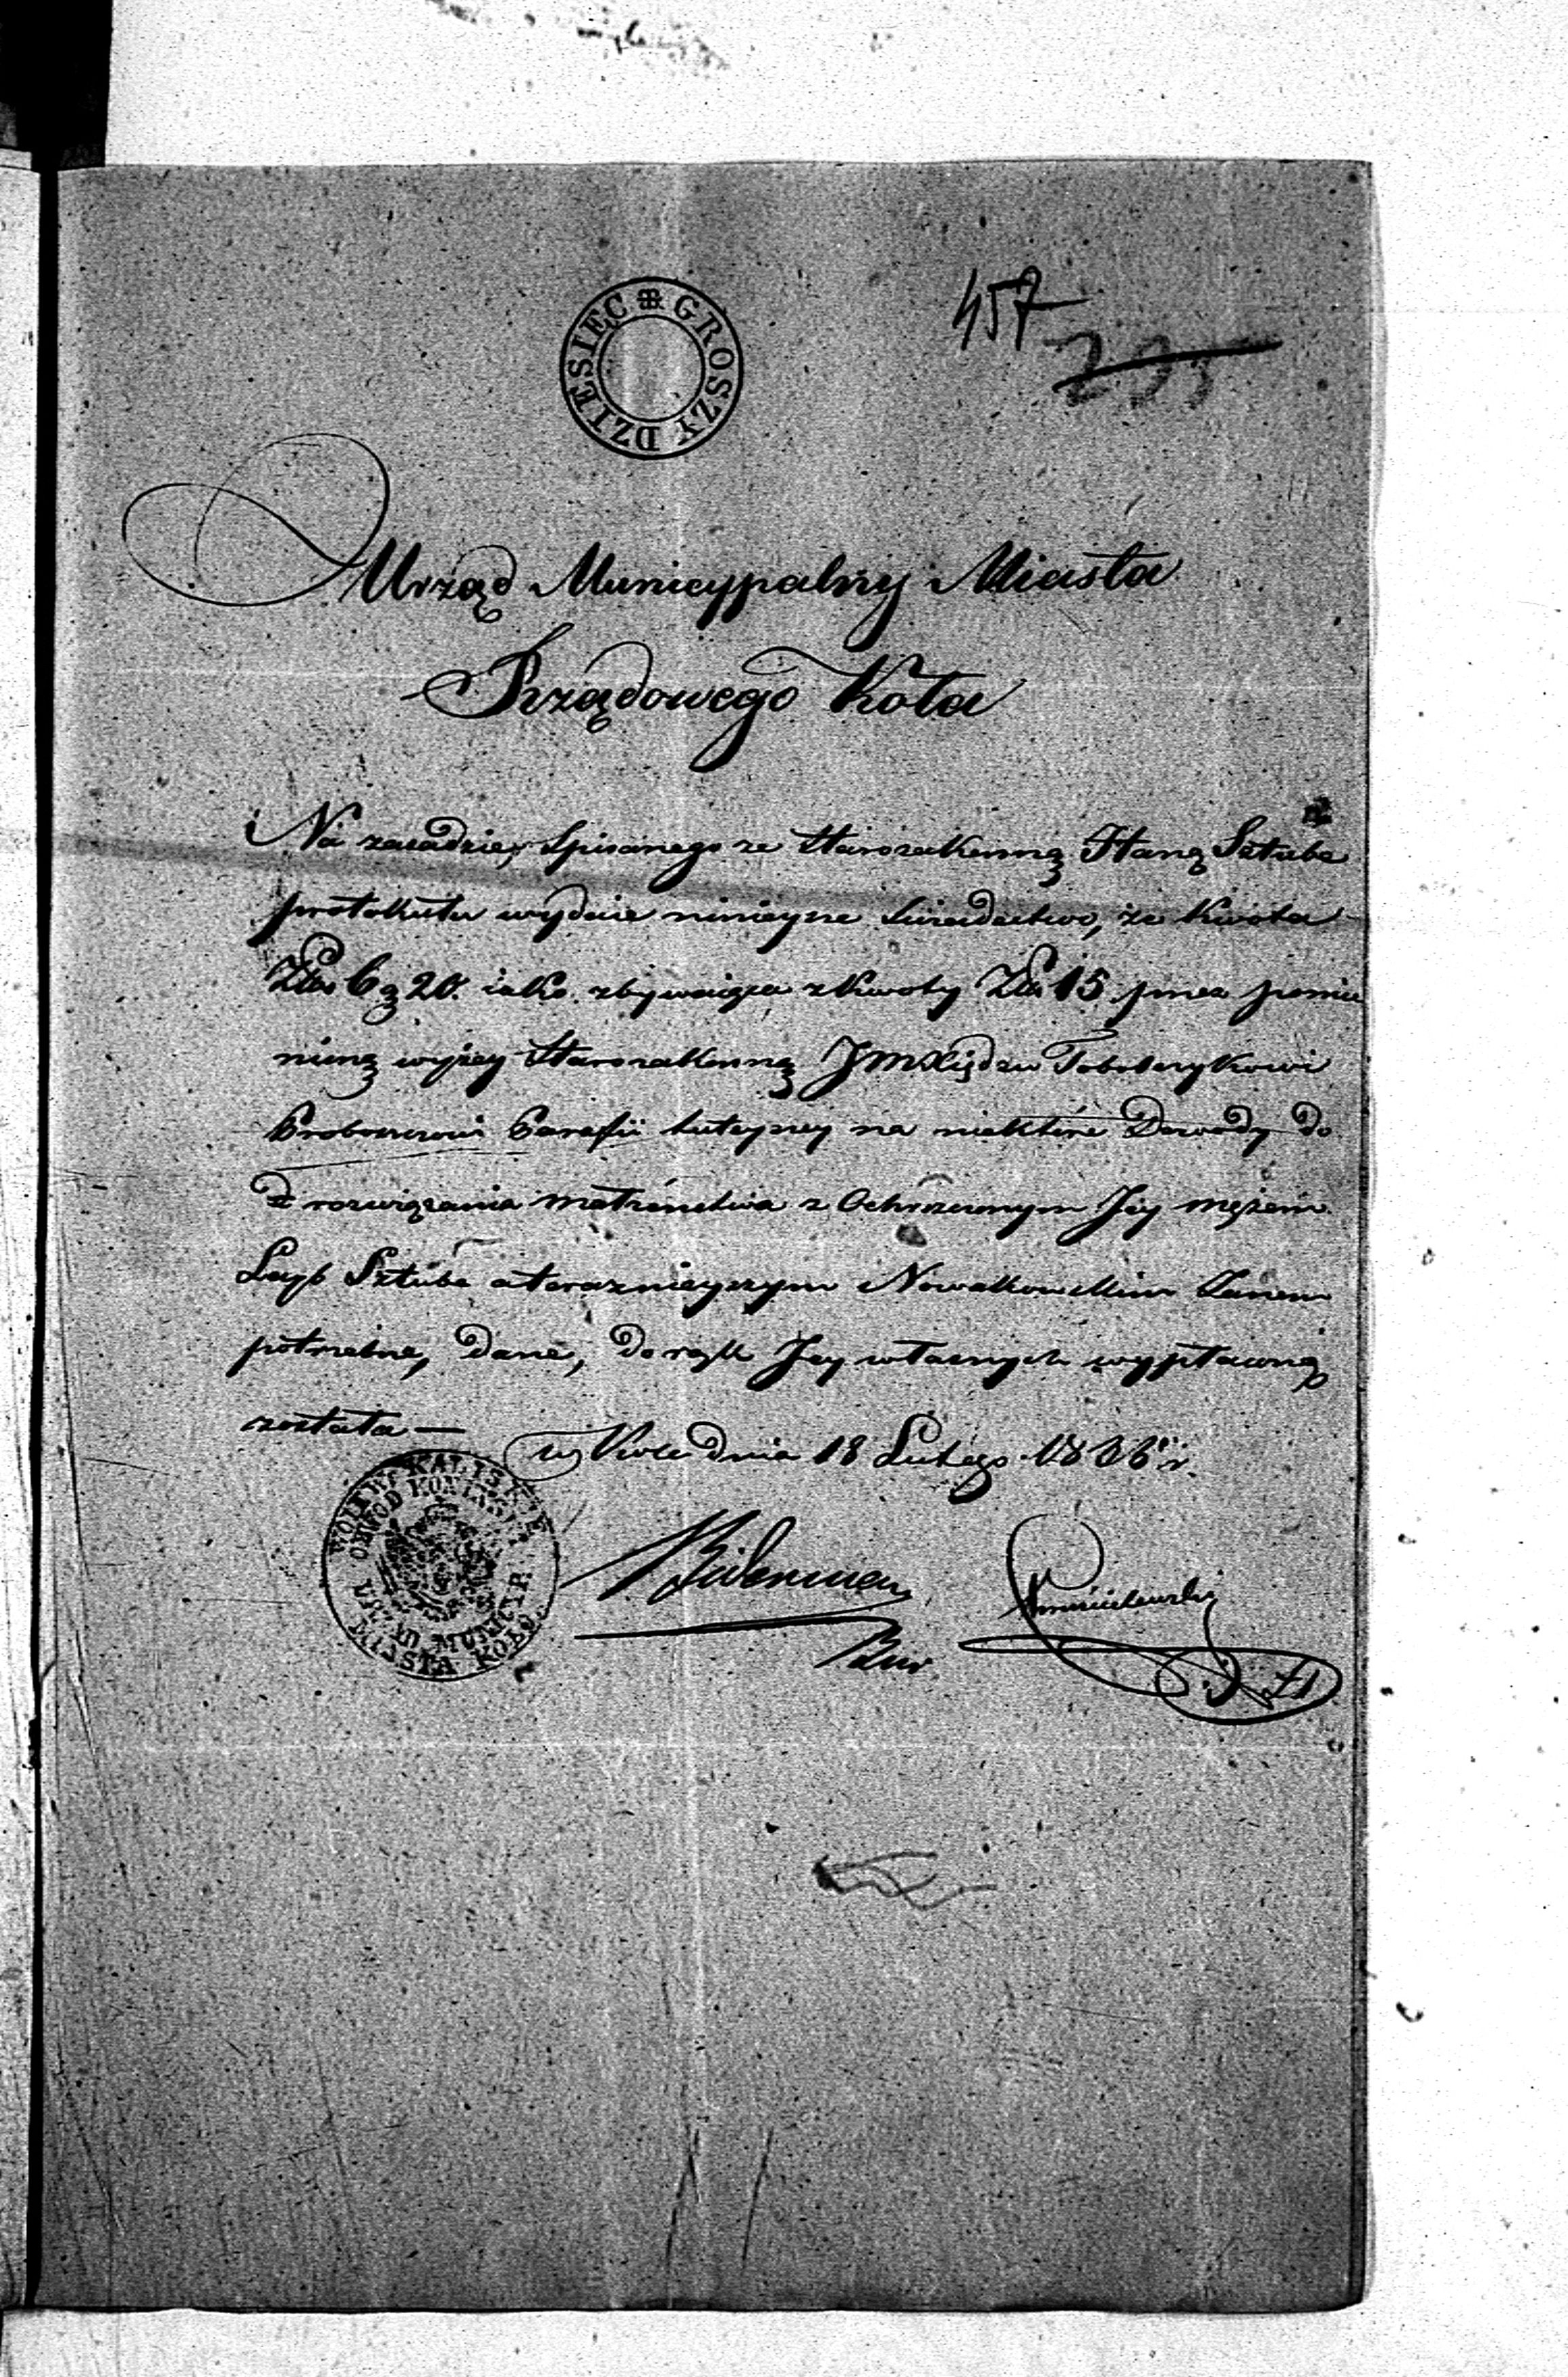 457
GROSZY DZIESIĘC
Urząd Municypalny Miasta
Rządowego Koła
Na zasadzie, Spisanego ze Starozakonną Haną Sztube
protokułu wydaie ninieysze Swiadectwo, że kwota
Złp 6 g 20. iako zbywaiąca z kwoty Złp 15 przez pomie
nioną wyżey Starozakonną JmXiędzu
Proboszczowi Parafii tuteyszey na niektóre Dowody do
rozwiązania małżeństwa z Ochrzconym Jey mężem
Leyb Sztube a teraznieyszym Nowakowskim Janem
potrzebne, dane, do rąk Jey własnych wypłaconą
została —
w Kole dnia 18 Lutego 1836 r.
WOIEW. KALISKIE
OBWOD KONINSKI
URZĄD MUNICYP.
MIASTA KOŁO
Bur.